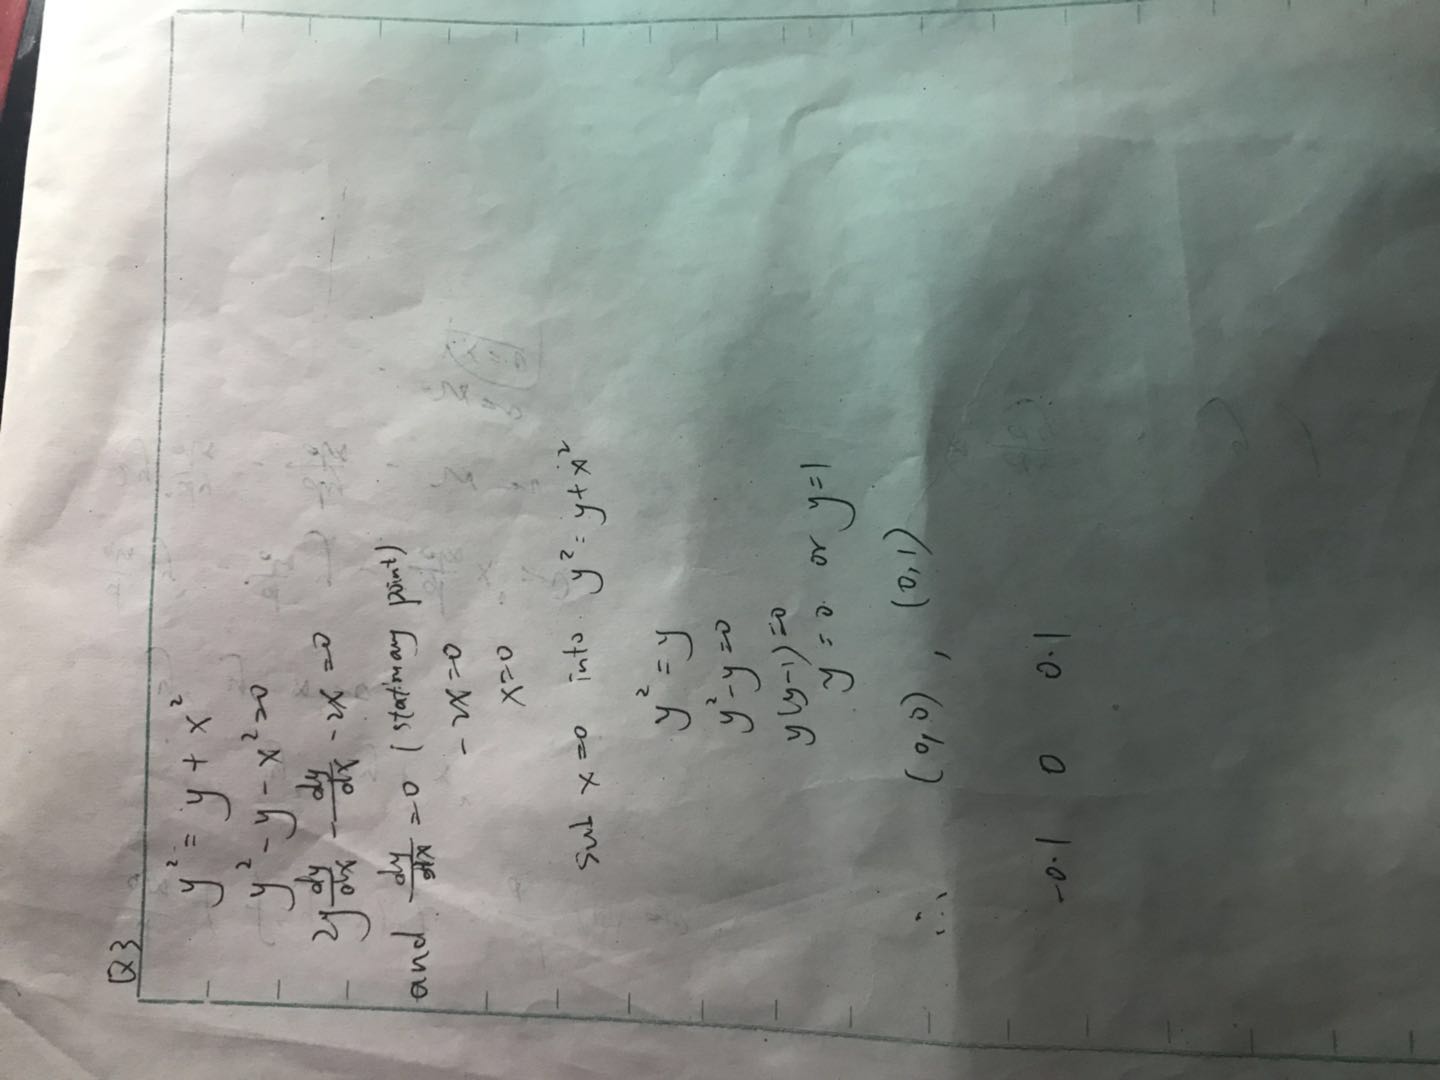 Q3
y² = y + x²
y² - y - x² = 0
2y dy/dx - dy/dx - 2x = 0
and dy/dx = 0 (stationary point)
- 2x = 0
x = 0
sub x = 0 into y² = y + x²
y² = y
y² - y = 0
y(y-1) = 0
y = 0 or y = 1
∴ (0,0) , (0,1)
-0.1 0 0.1